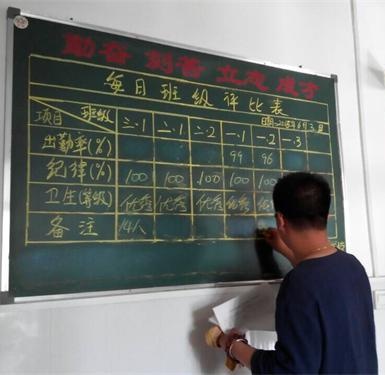 勤奋 刻苦 立志 成才
每日班级评比表
日期:2015年6月3日
项目 班级 三.1 二.1 二.2 一.1 一.2 一.3
出勤率(%) 99 96
纪律(%) 100 100 100 100 100
卫生(等级) 优秀 优秀 优秀 优秀
备注 14人